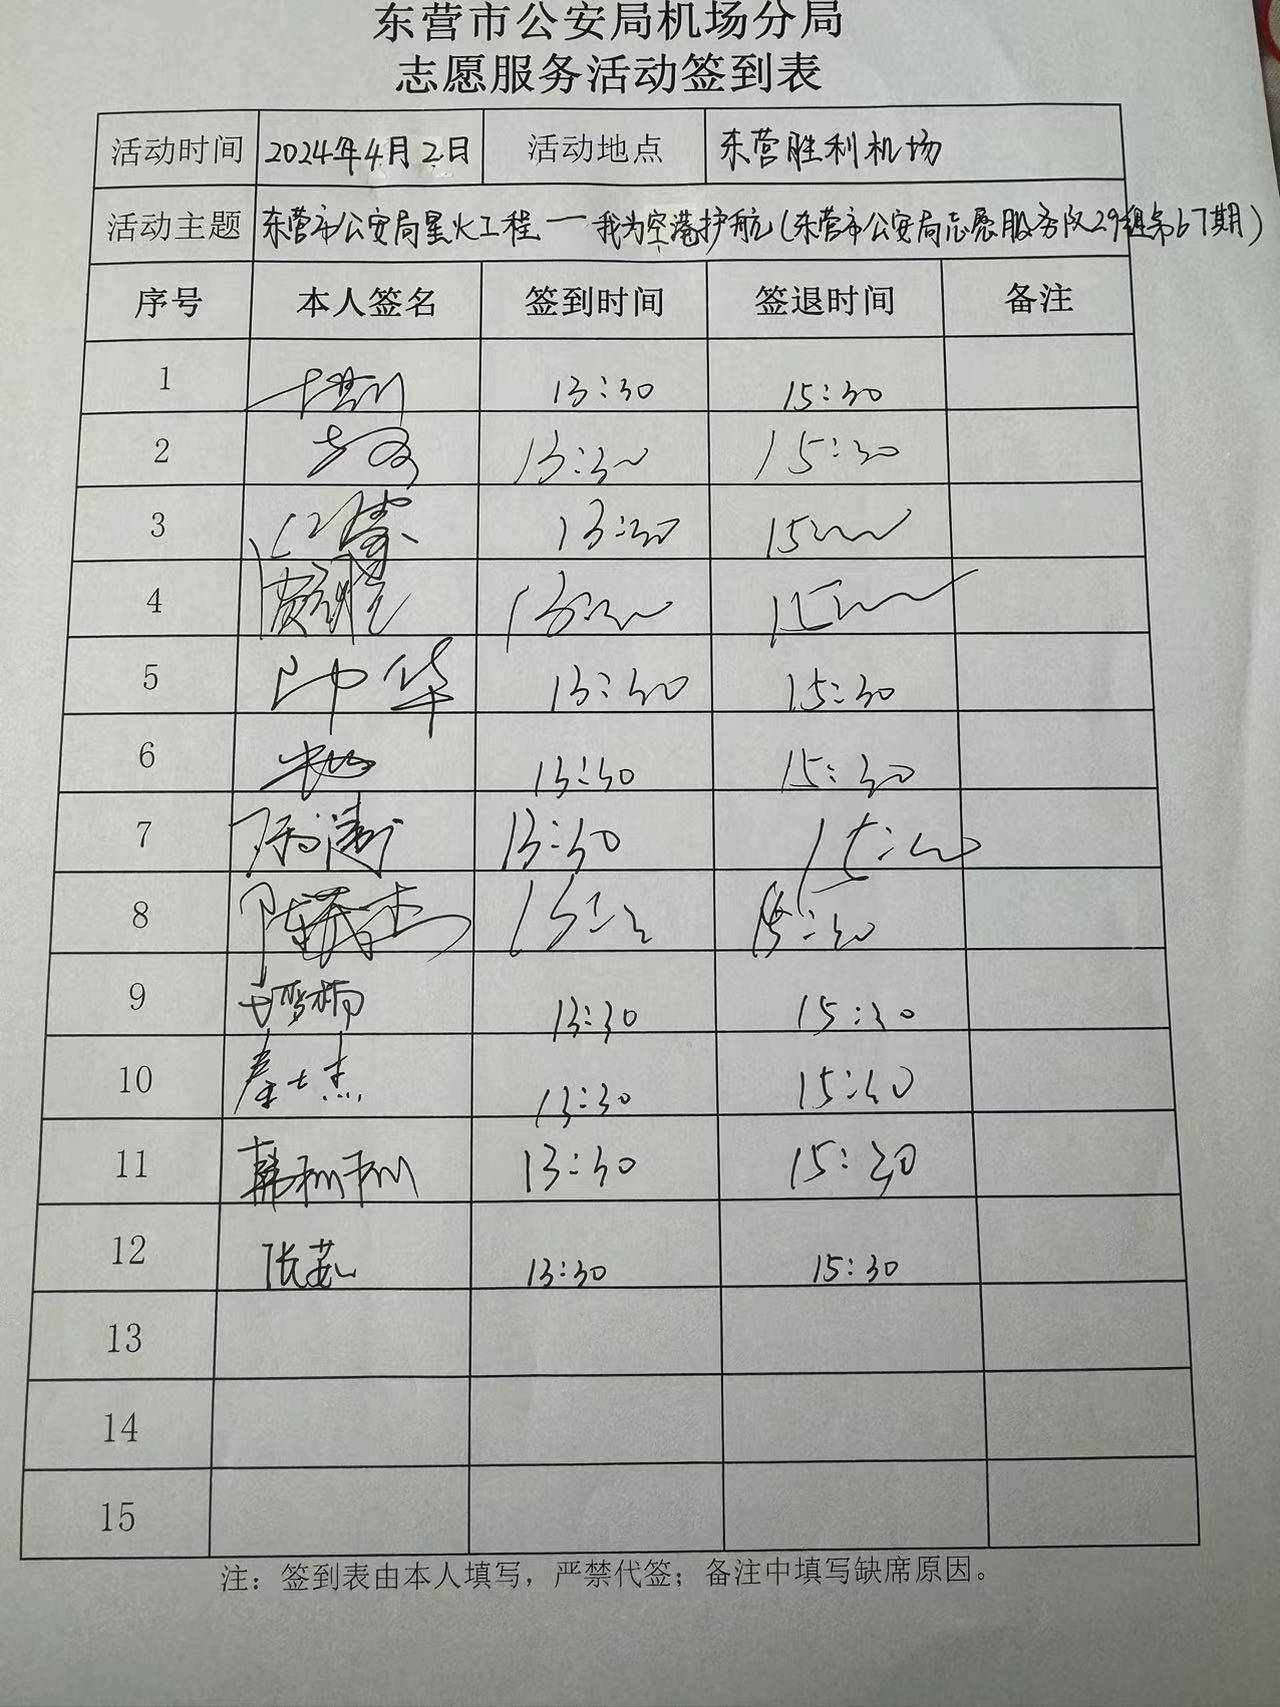 东营市公安局机场分局
志愿服务活动签到表
活动时间 2024年4月2日 活动地点 东营胜利机场
活动主题 东营市公安局星火工程一我为空港护航(东营市公安局志愿服务队29组第67期)
序号 本人签名 签到时间 签退时间 备注
1 13:30 15:30
2 13:30 15:30
3 13:30 15
4 13
5 华 13:30 15:30
6 13:30 15:30
7 13:30 15:30
8 陈 13: 15:30
9 13:30 15:30
10 秦士杰 13:30 15:30
11 韩 13:30 15:30
12 张茹 13:30 15:30
13
14
15
注：签到表由本人填写，严禁代签；备注中填写缺席原因。